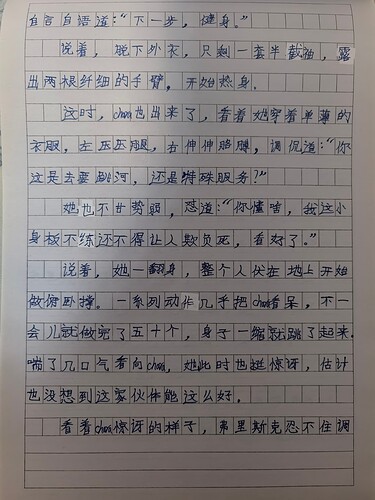 自言自语道：“下一步，健身。”
说着，脱下外衣，只剩一套半截袖，露
出两根纤细的手臂，开始热身。
这时，chara也出来了，看着她穿着单薄的
衣服，左压压腿，右伸伸胳膊，调侃道：“你
这是去要跳河，还是特殊服务？”
她也不甘势弱，怼道：“你懂啥，我这小
身板不练还不得让人欺负死，看好了。”
说着，她一翻身，整个人伏在地上开始
做俯卧撑。一系列动作几乎把chara看呆，不一
会儿就做完了五十个，身子一缩就跳了起来.
喘了几口气看向chara，她此时也挺惊讶，估计
也没想到这家伙体能这么好。
看着chara惊讶的样子，弗里斯克忍不住调